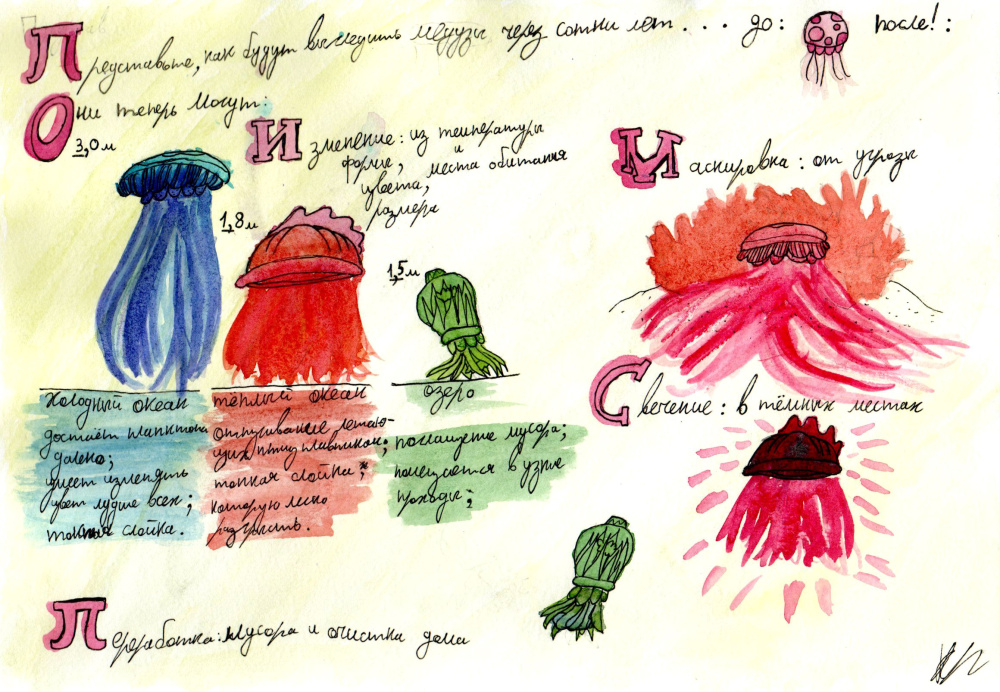 Представьте, как будут выглядить медузы через сотни лет... до: после!:
Они теперь могут:
3,0 м
Изменение: из температуры
форме, и места обитания
цвета,
размера
1,8 м
1,5 м
Маскировка: от угрозы
Свечение: в тёмных местах
холодный океан
достаёт планктона
далеко;
умеет изменять
цвет лучше всех;
слойка.
тёплый океан
отпугивание летаю-
щих птиц плавником;
тонкая слойка*;
которую легко
озеро
поглащение мусора;
помещается в узкие
проходы;
Переработка: мусора и очистка дома